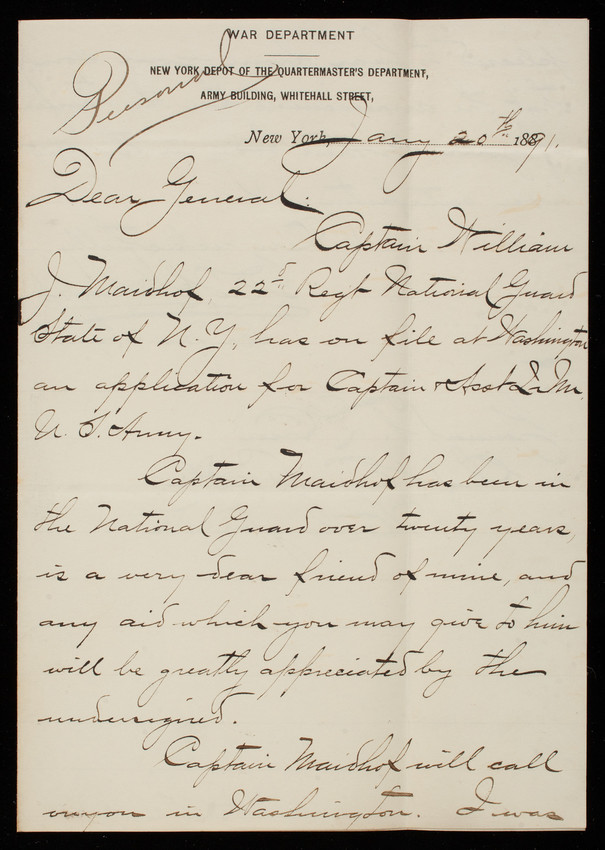 WAR DEPARTMENT
NEW YORK DEPOT OF THE QUARTERMASTER'S DEPARTMENT,
ARMY BUILDING, WHITEHALL STREET,
Personal
New York, Jany 20th 1891.
Dear General:
Captain William
J. Maidhof 22d Regt National Guard
State of N.Y, has on file at Washington
an application for Captain & Asst Q.M.
U.S. Army.
Captain Maidhof has been in
the National Guard over twenty years,
is a very dear friend of mine, and
any aid which you may give to him
will be greatly appreciated by the
undersigned.
Captain Maidhof will call
on you in Washington. I was